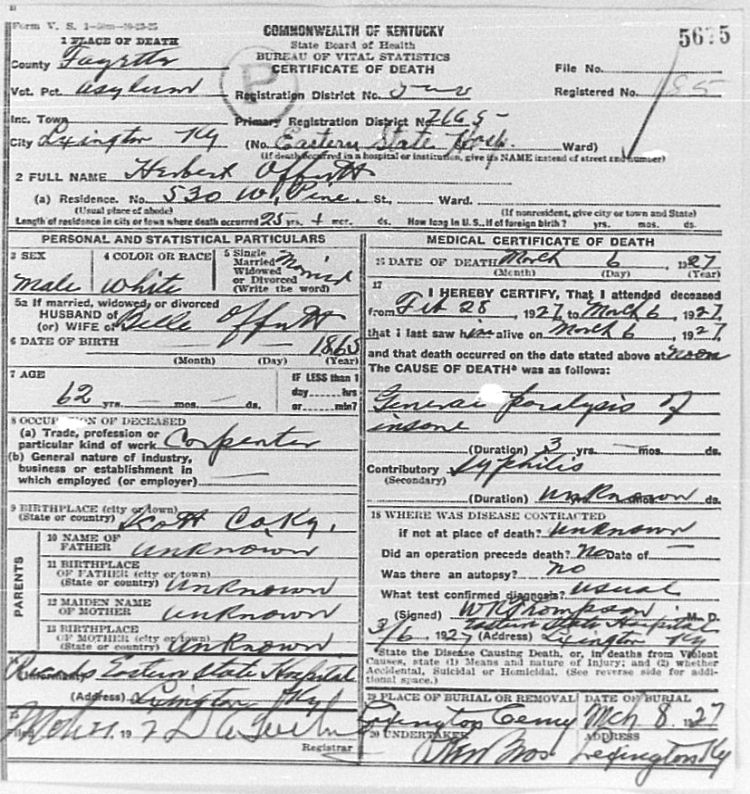 Form V. S. 1
COMMONWEALTH OF KENTUCKY
State Board of Health
BUREAU OF VITAL STATISTICS
CERTIFICATE OF DEATH
5675
1 PLACE OF DEATH
County Fayette
Vot. Pct. Asylum
Inc. Town
City Lexington Ky
P
Registration District No.
Primary Registration District No. 2165
(No. Eastern State Hosp. Ward)
(If death occurred in a hospital or institution, give its NAME instead of street and number)
File No.
Registered No. 185
2 FULL NAME Herbert Offutt
(a) Residence. No. 530 W. Pine St., Ward.
(Usual place of abode) (If nonresident, give city or town and State)
Length of residence in city or town where death occurred 25 yrs. 4 mos. ds. How long in U. S., if of foreign birth? yrs. mos. ds.
PERSONAL AND STATISTICAL PARTICULARS
3 SEX
male
4 COLOR OR RACE
white
5 Single
Married
Widowed
or Divorced
(Write the word)
Married
5a If married, widowed, or divorced
HUSBAND of
(or) WIFE of Belle Offutt
6 DATE OF BIRTH 1865
(Month) (Day) (Year)
7 AGE
62 yrs. — mos. — ds.
IF LESS than 1
day hrs
or min?
8 OCCUPATION OF DECEASED
(a) Trade, profession or
particular kind of work Carpenter
(b) General nature of industry,
business or establishment in
which employed (or employer)
9 BIRTHPLACE (city or town)
(State or country) Scott Co Ky.
PARENTS
10 NAME OF
FATHER Unknown
11 BIRTHPLACE
OF FATHER (city or town)
(State or country) Unknown
12 MAIDEN NAME
OF MOTHER Unknown
13 BIRTHPLACE
OF MOTHER (city or town)
(State or country) Unknown
Records Eastern State Hospital
(Address) Lexington Ky
15
Registrar
MEDICAL CERTIFICATE OF DEATH
16 DATE OF DEATH March 6, 1927
(Month) (Day) (Year)
17
I HEREBY CERTIFY, That I attended deceased
from Feb 28, 1927 to March 6, 1927,
that I last saw him alive on March 6, 1927
and that death occurred on the date stated above at noon
The CAUSE OF DEATH* was as follows:
General paralysis of
insane
(Duration) 3 yrs. — mos. ds.
Contributory Syphilis
(Secondary)
(Duration) Unknown ds.
18 WHERE WAS DISEASE CONTRACTED
if not at place of death? Unknown
Did an operation precede death? No Date of —
Was there an autopsy? no
What test confirmed diagnosis? usual
(Signed) W R Thompson M. D.
3/6, 1927 (Address) Eastern State Hospital
Lexington Ky
State the Disease Causing Death, or, in deaths from Violent
Causes, state (1) Means and nature of Injury; and (2) whether
Accidental, Suicidal or Homicidal. (See reverse side for addi-
tional space.)
19 PLACE OF BURIAL OR REMOVAL
Lexington Cemy
DATE OF BURIAL
Mch 8, 1927
20 UNDERTAKER
Bros
ADDRESS
Lexington Ky